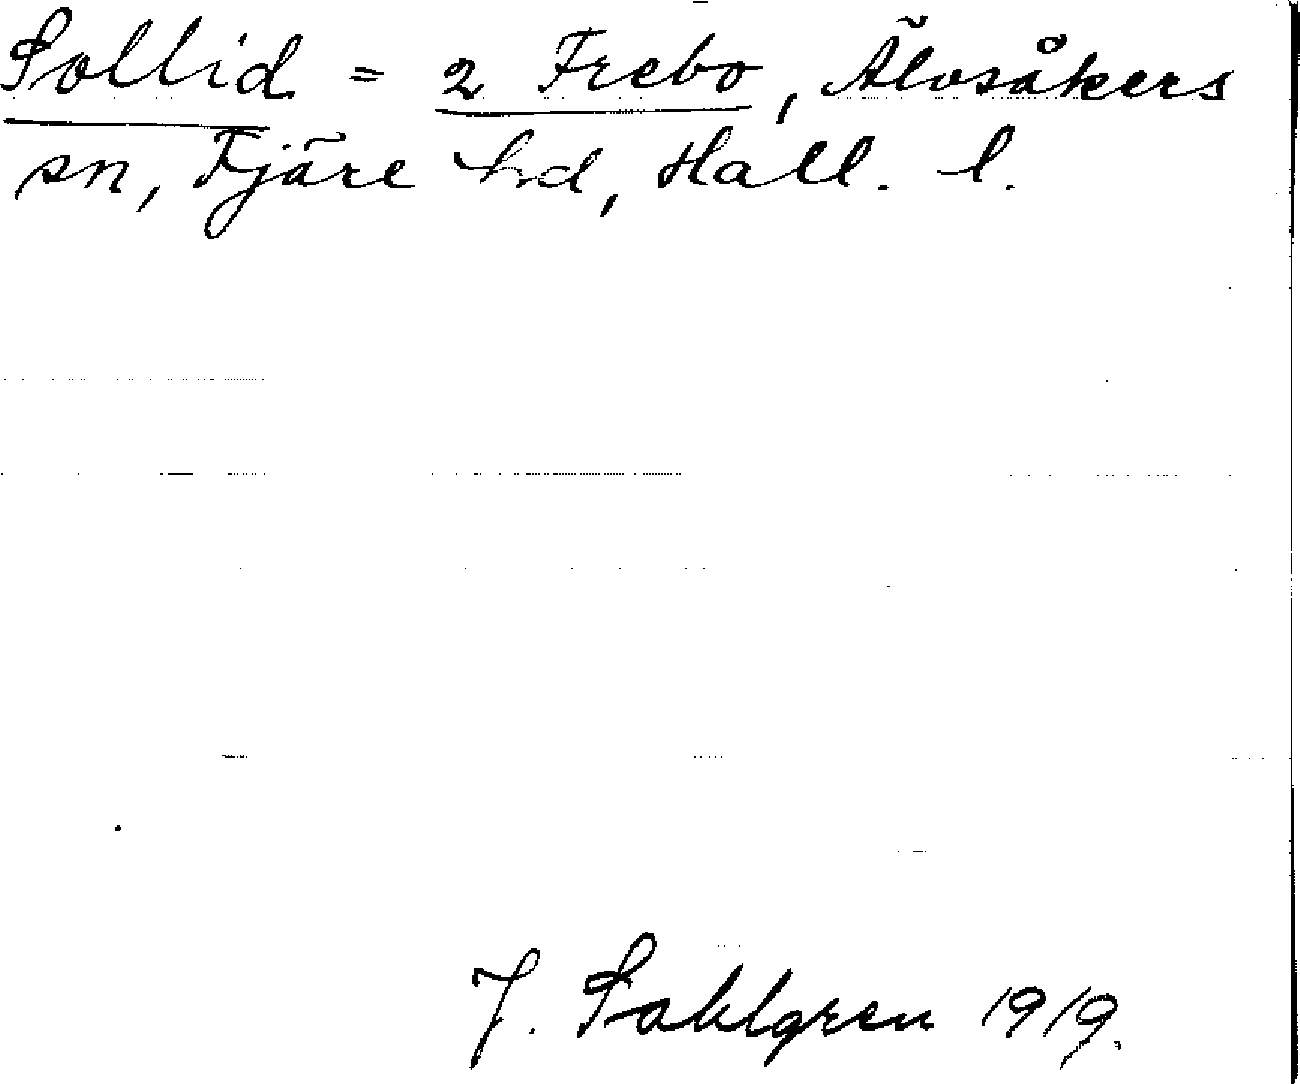 Sollid = 2 Frebo, Älvsåkers
sn, Fjäre hd, Hall. l.
J. Sahlgren 1919.